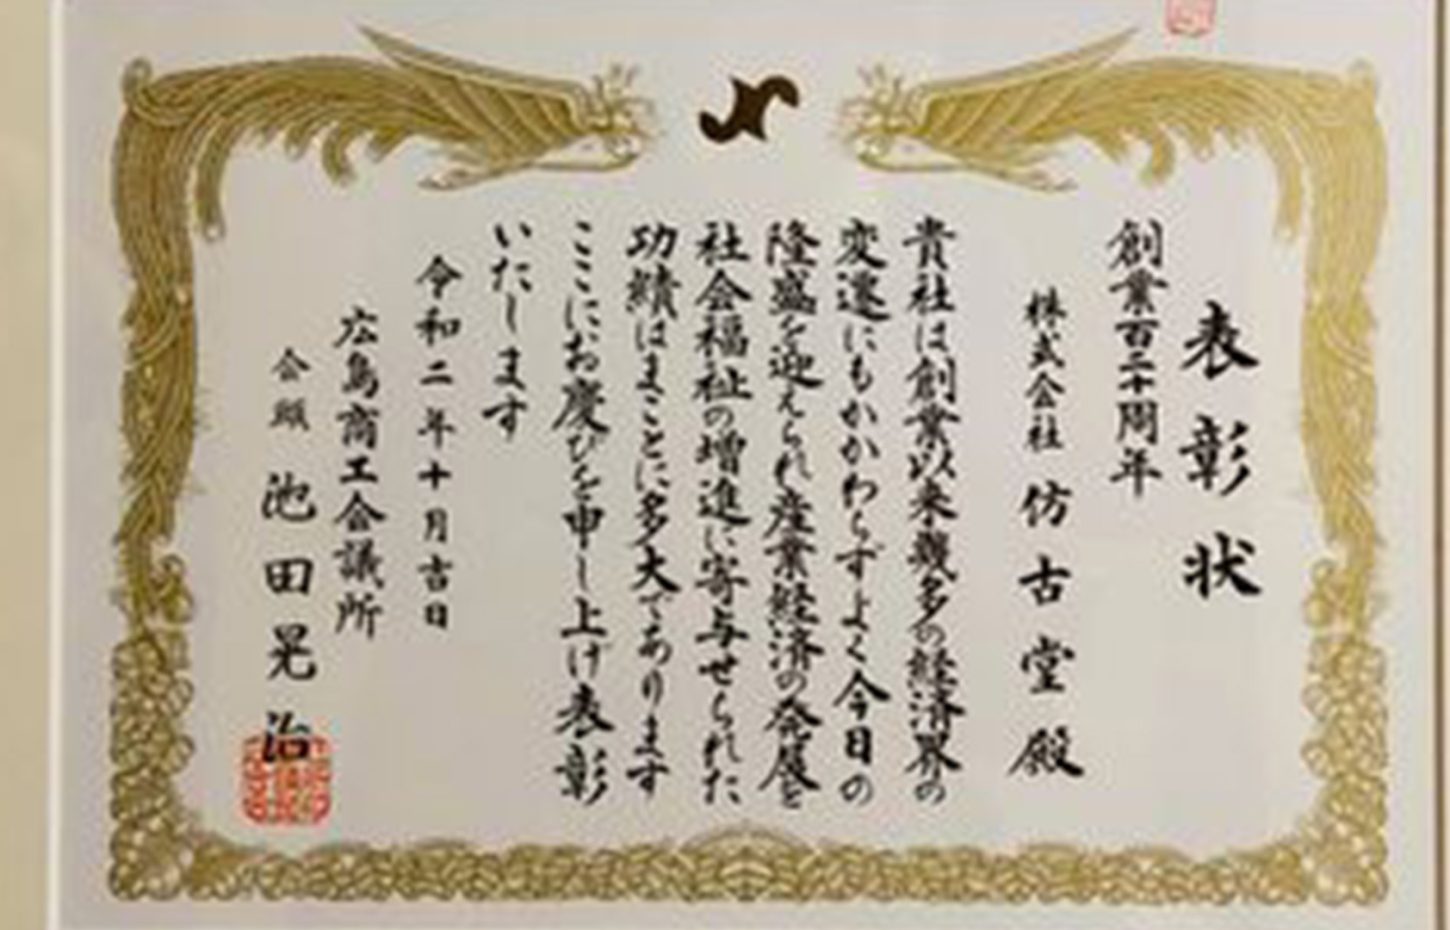 表彰状
創業百二十周年
株式会社 仿古堂 殿
貴社は創業以来幾多の経済界の
変遷にもかかわらずよく今日の
隆盛を迎えられ産業経済の発展と
社会福祉の増進に寄与せられた
功績はまことに多大であります
ここにお慶びを申し上げ表彰
いたします
令和二年十月吉日
広島商工会議所
会頭 池田晃治